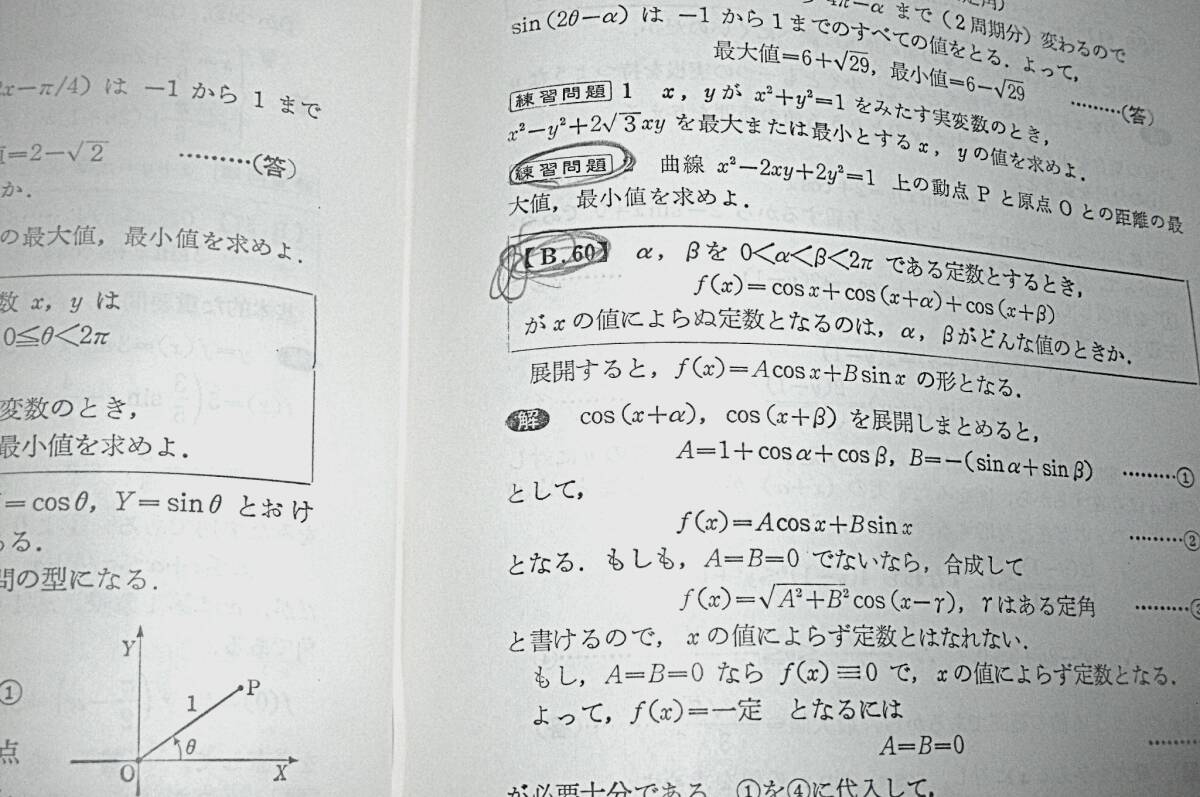 2x−π/4) は −1 から 1 まで
値=2−√2 ………(答)
か.
の最大値，最小値を求めよ.
数 x, y は
0≦θ<2π
変数のとき，
最小値を求めよ.
=cosθ, Y=sinθ とおけ
る.
問の型になる.
Y
P
1
θ
O
X
①
点
まで (2周期分) 変わるので
sin (2θ−α) は −1 から 1 までのすべての値をとる. よって，
最大値=6+√29, 最小値=6−√29 ………(答)
練習問題 1 x, y が x²+y²=1 をみたす実変数のとき，
x²−y²+2√3xy を最大または最小とする x, y の値を求めよ.
練習問題 2 曲線 x²−2xy+2y²=1 上の動点 P と原点 O との距離の最
大値，最小値を求めよ.
【B.60】 α, β を 0<α<β<2π である定数とするとき，
f(x)=cos x+cos(x+α)+cos(x+β)
が x の値によらぬ定数となるのは，α, β がどんな値のときか.
展開すると，f(x)=A cos x+B sin x の形となる.
解 cos(x+α), cos(x+β) を展開しまとめると，
A=1+cos α+cos β, B=−(sin α+sin β) ………①
として，
f(x)=A cos x+B sin x ………②
となる. もしも，A=B=0 でないなら，合成して
f(x)=√A²+B² cos(x−γ), γはある定角 ………③
と書けるので，x の値によらず定数とはなれない.
もし，A=B=0 なら f(x)≡0 で，x の値によらず定数となる.
よって，f(x)=一定 となるには
A=B=0 ………
が必要十分である. ①を④に代入して，